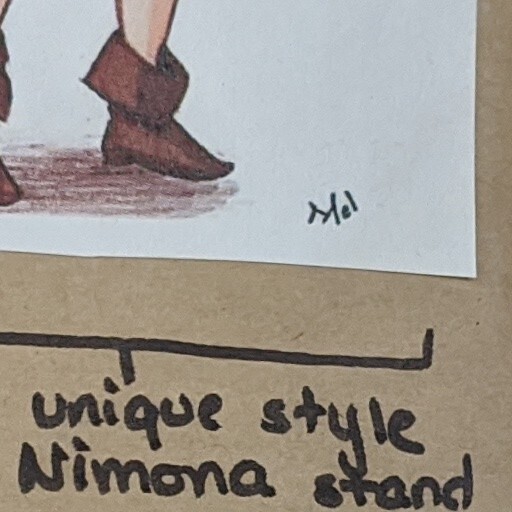 Mel
unique style
Nimona stand